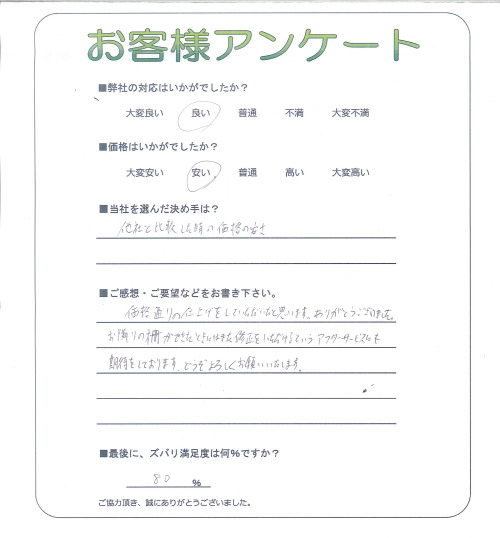 お客様アンケート
■弊社の対応はいかがでしたか？
大変良い 良い 普通 不満 大変不満
■価格はいかがでしたか？
大変安い 安い 普通 高い 大変高い
■当社を選んだ決め手は？
他社と比較した時の価格の安さ
■ご感想・ご要望などをお書き下さい。
価格通りの仕上げをしていただいたと思います。ありがとうございました。
お隣りの柵ができたときに 修正をいただけるというアフターサービスにも
期待をしております。どうぞよろしくお願いいたします。
■最後に、ズバリ満足度は何％ですか？
80 ％
ご協力頂き、誠にありがとうございました。